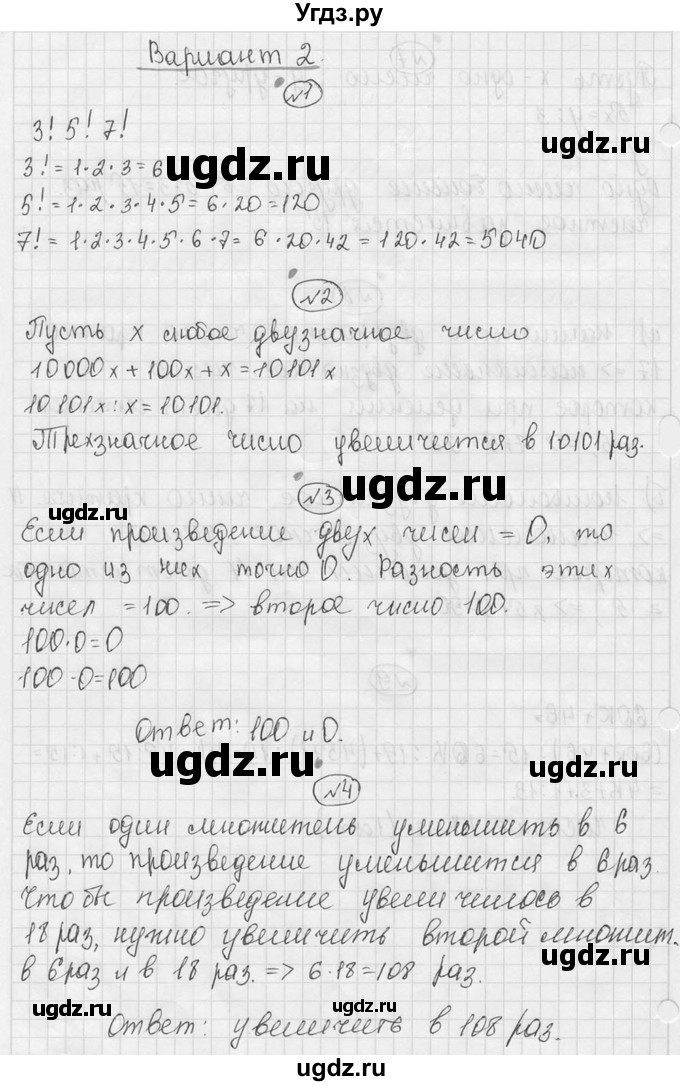 Угдз.ру
Вариант 2.
№1
3! 5! 7!
3! = 1·2·3=6
ugdz.ru
ugdz.ru
5! = 1·2·3·4·5 = 6·20=120
7! = 1·2·3·4·5·6·7= 6·20·42 = 120·42=5040
ugdz.ru
№2
Пусть x любое двузначное число
10000x + 100x + x = 10101x
ugdz.ru
10101x : x = 10101.
Трехзначное число увеличится в 10101 раз.
ugdz.ru
№3
Если произведение двух чисел = 0, то
одно из них точно 0. Разность этих
ugdz.ru
чисел =100. => второе число 100.
100·0=0
100-0=100
ugdz.ru
Ответ: 100 и 0.
ugdz.ru
№4
Если один множитель уменьшить в 6
раз, то произведение уменьшится в 6 раз.
ugdz.ru
Чтобы произведение увеличилось в
18 раз, нужно увеличить второй множит.
ugdz.ru
в 6 раз и в 18 раз. => 6·18=108 раз.
Ответ: увеличить в 108 раз.
ugdz.ru
ugdz.ru